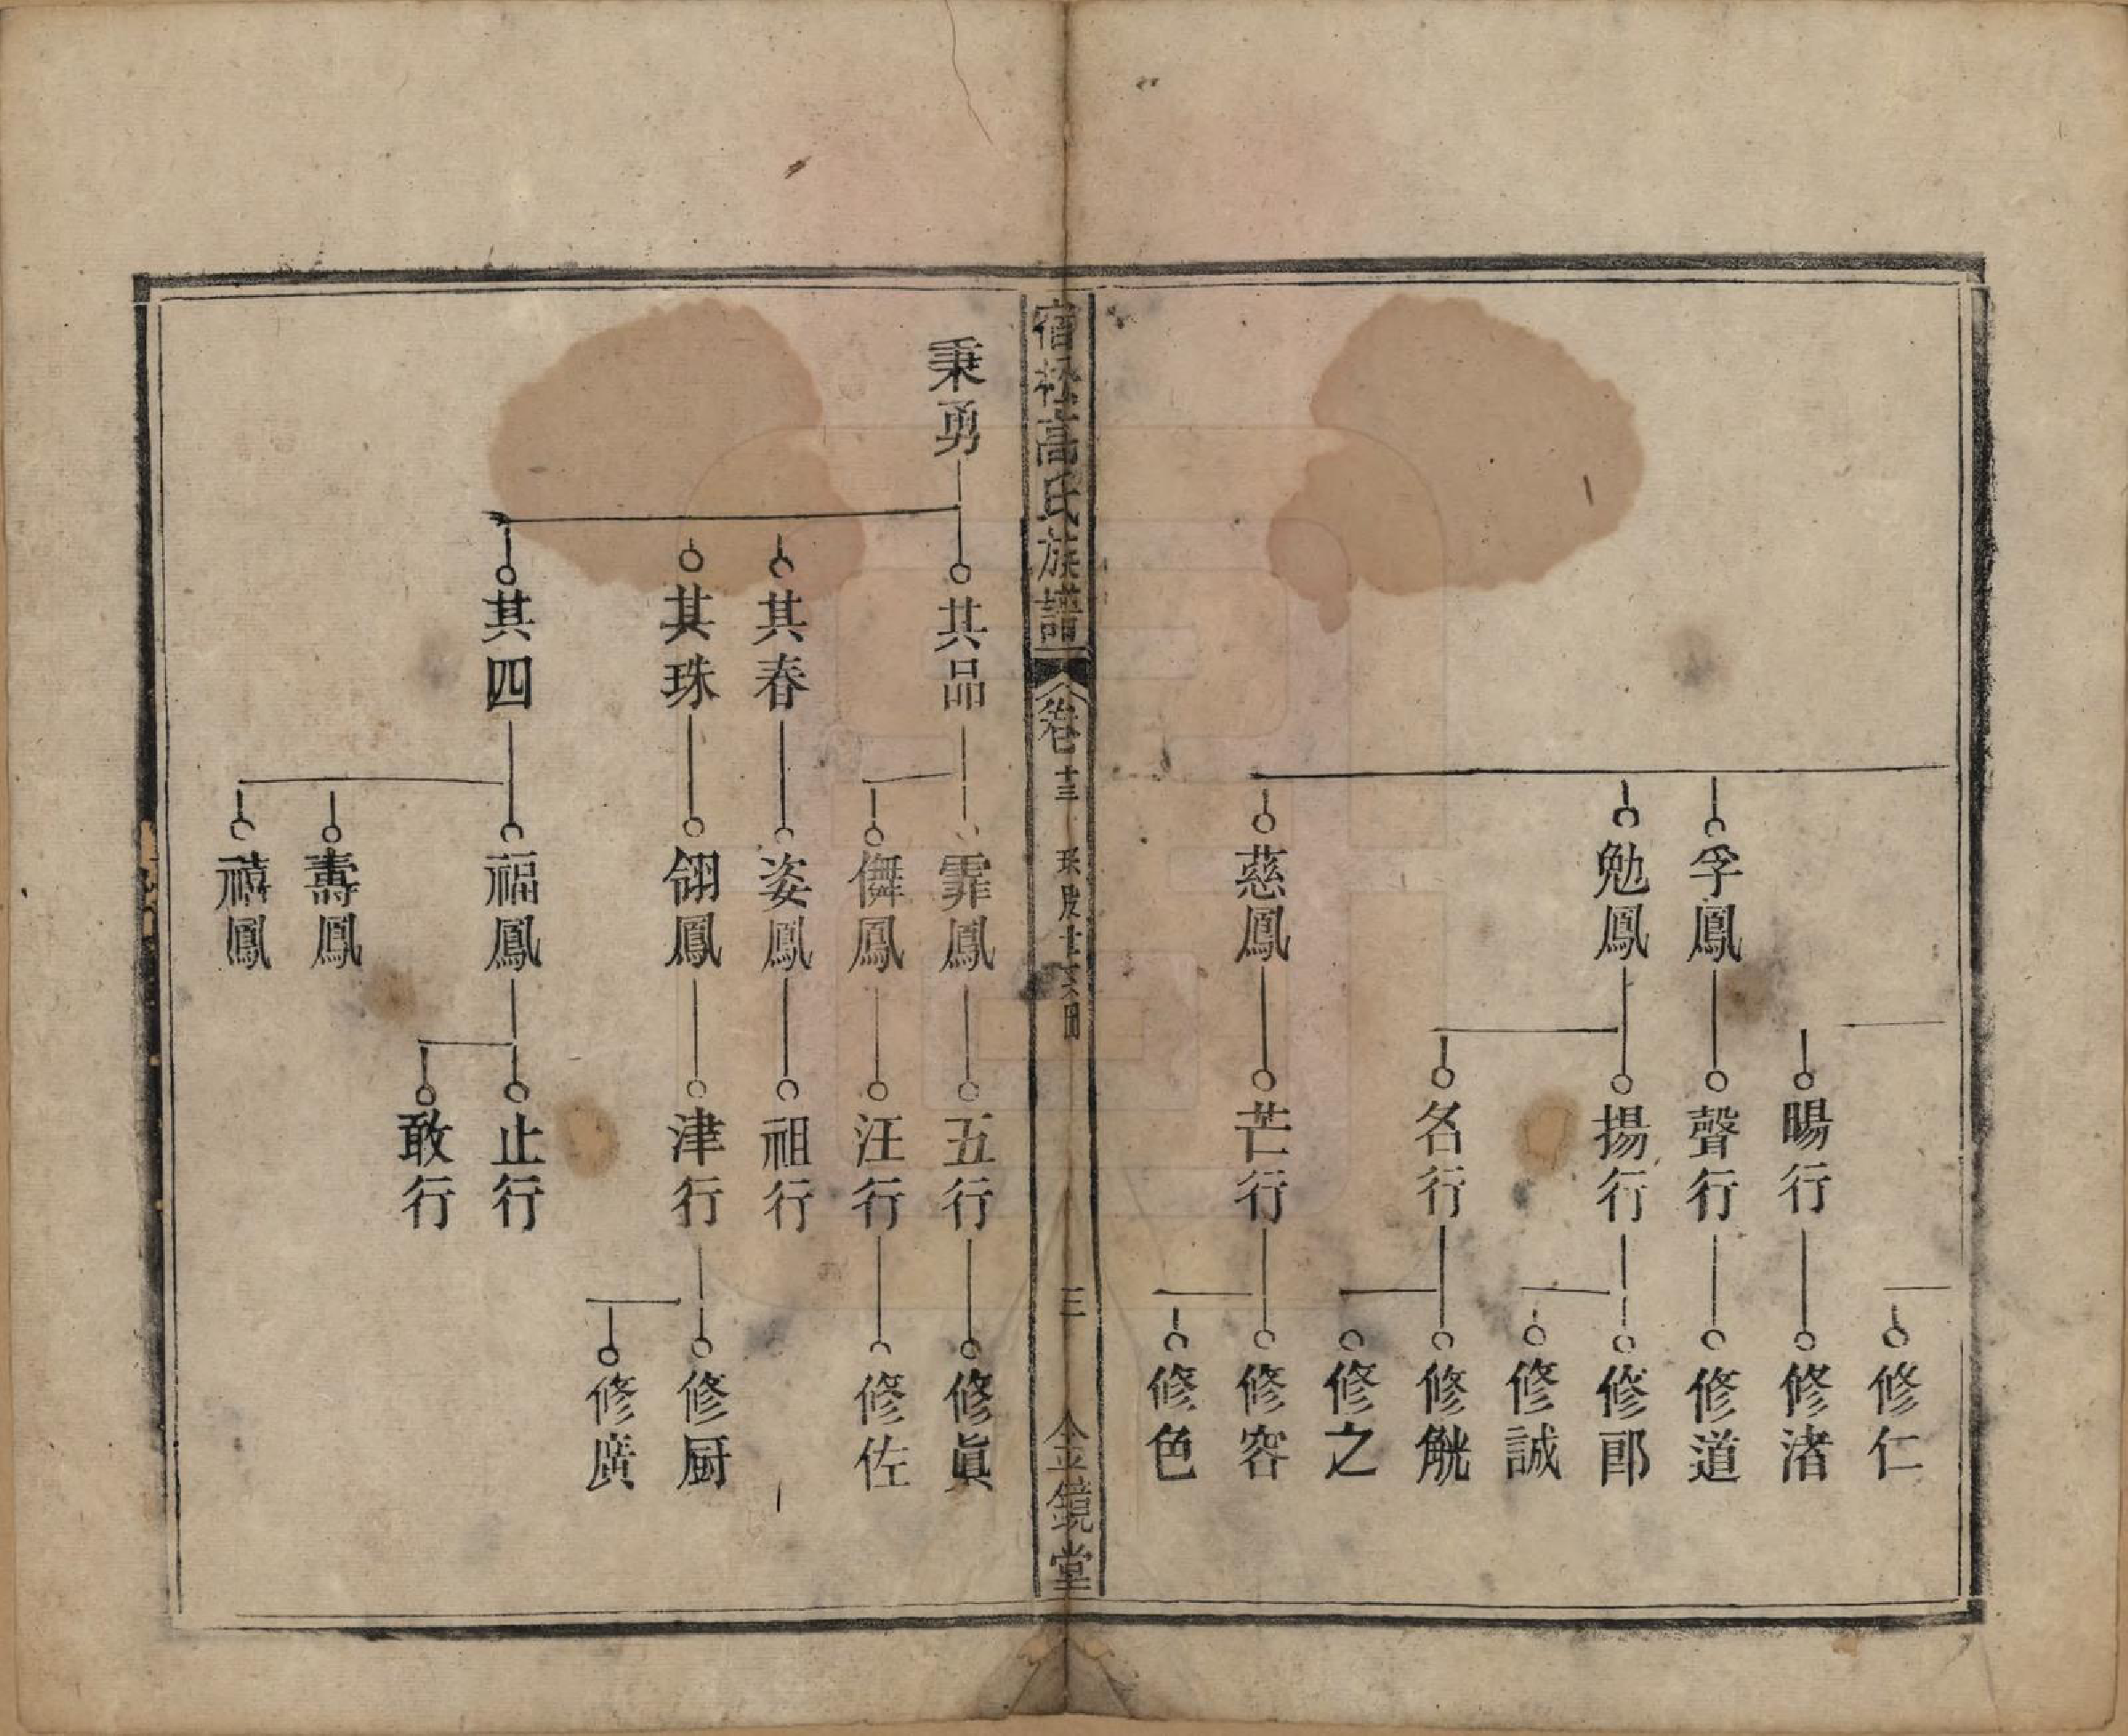 修仁
暘行
修渚
孚鳳
聲行
修道
勉鳳
揚行
修郎
修誠
名行
修觥
修之
慈鳳
芒行
修容
修色
宿松高氏族譜
卷十三
三
金鏡堂
秉勇
其品
霏鳳
五行
修眞
儛鳳
汪行
修佐
其春
姿鳳
祖行
其珠
翎鳳
津行
修厨
修廣
其四
福鳳
止行
敢行
壽鳳
禧鳳